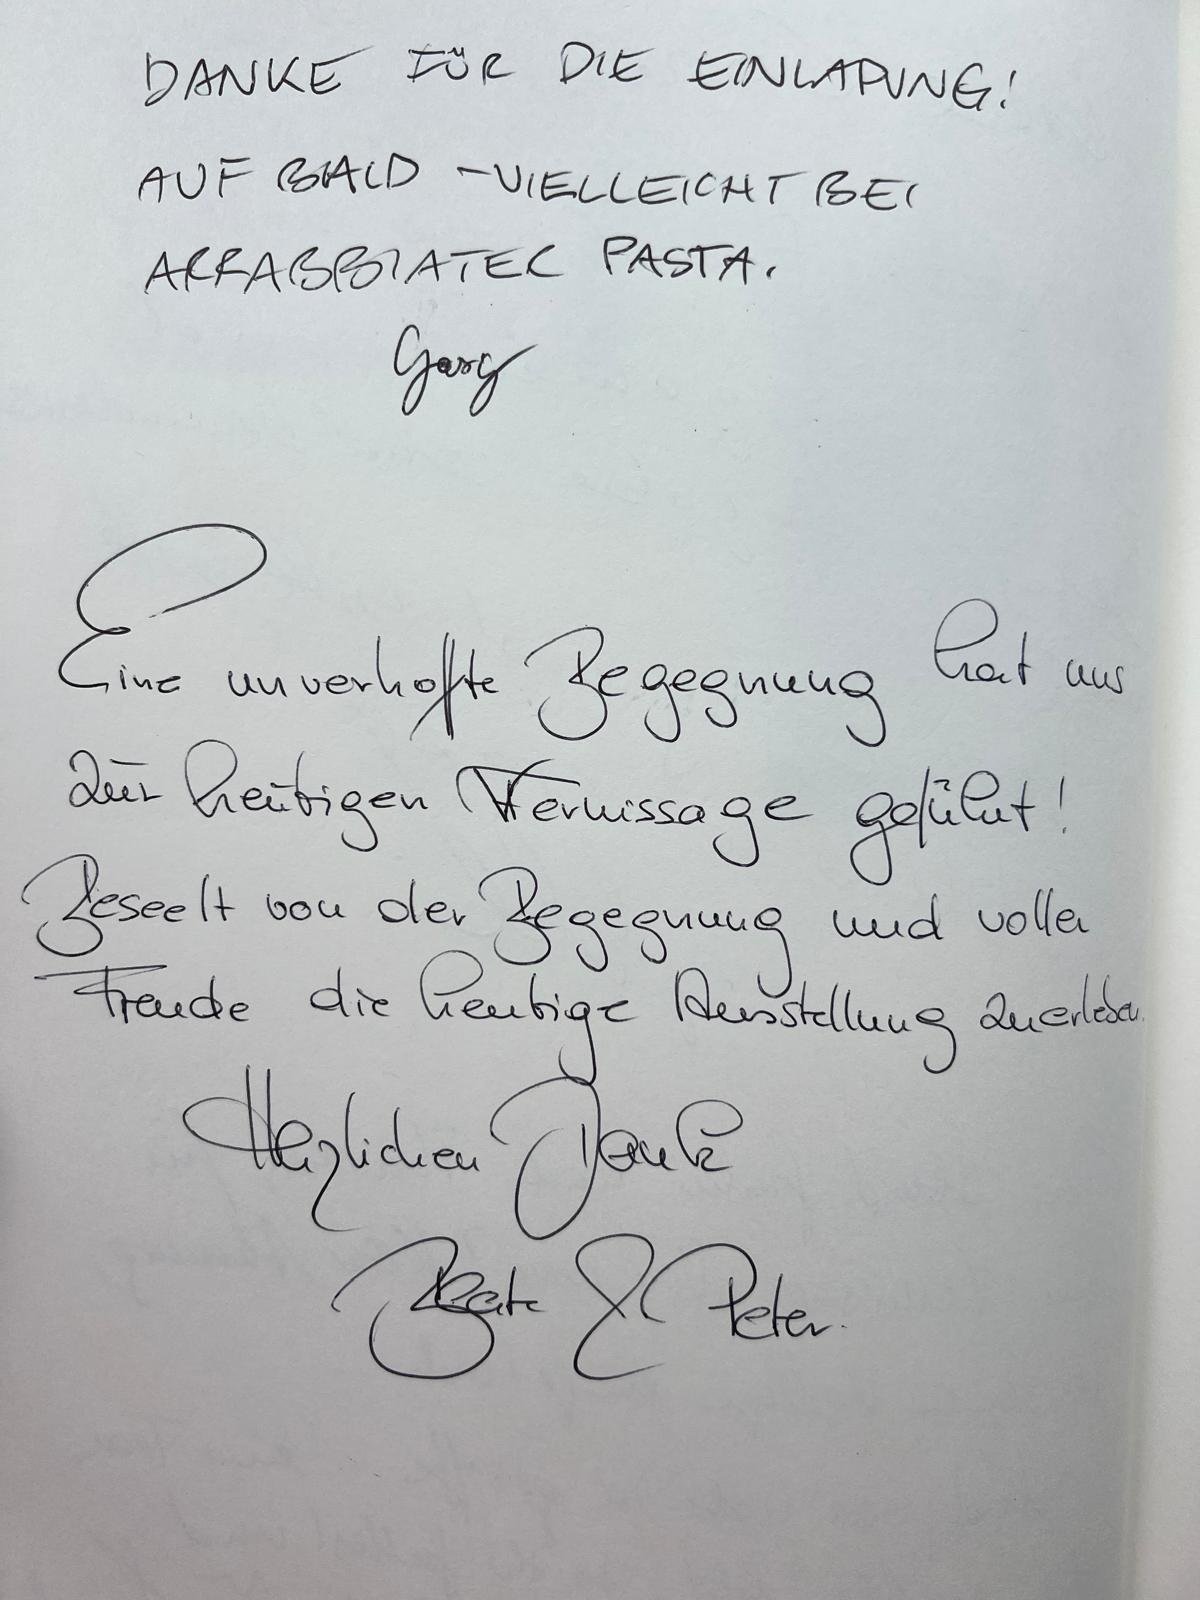 DANKE FÜR DIE EINLADUNG!
AUF BALD – VIELLEICHT BEI
ARRABBIATER PASTA.
Georg
Eine unverhoffte Begegnung hat uns
zur heutigen Vernissage geführt!
Beseelt von der Begegnung und voller
Freude die heutige Ausstellung zuerleben.
Herzlichen Dank
Beate & Peter.